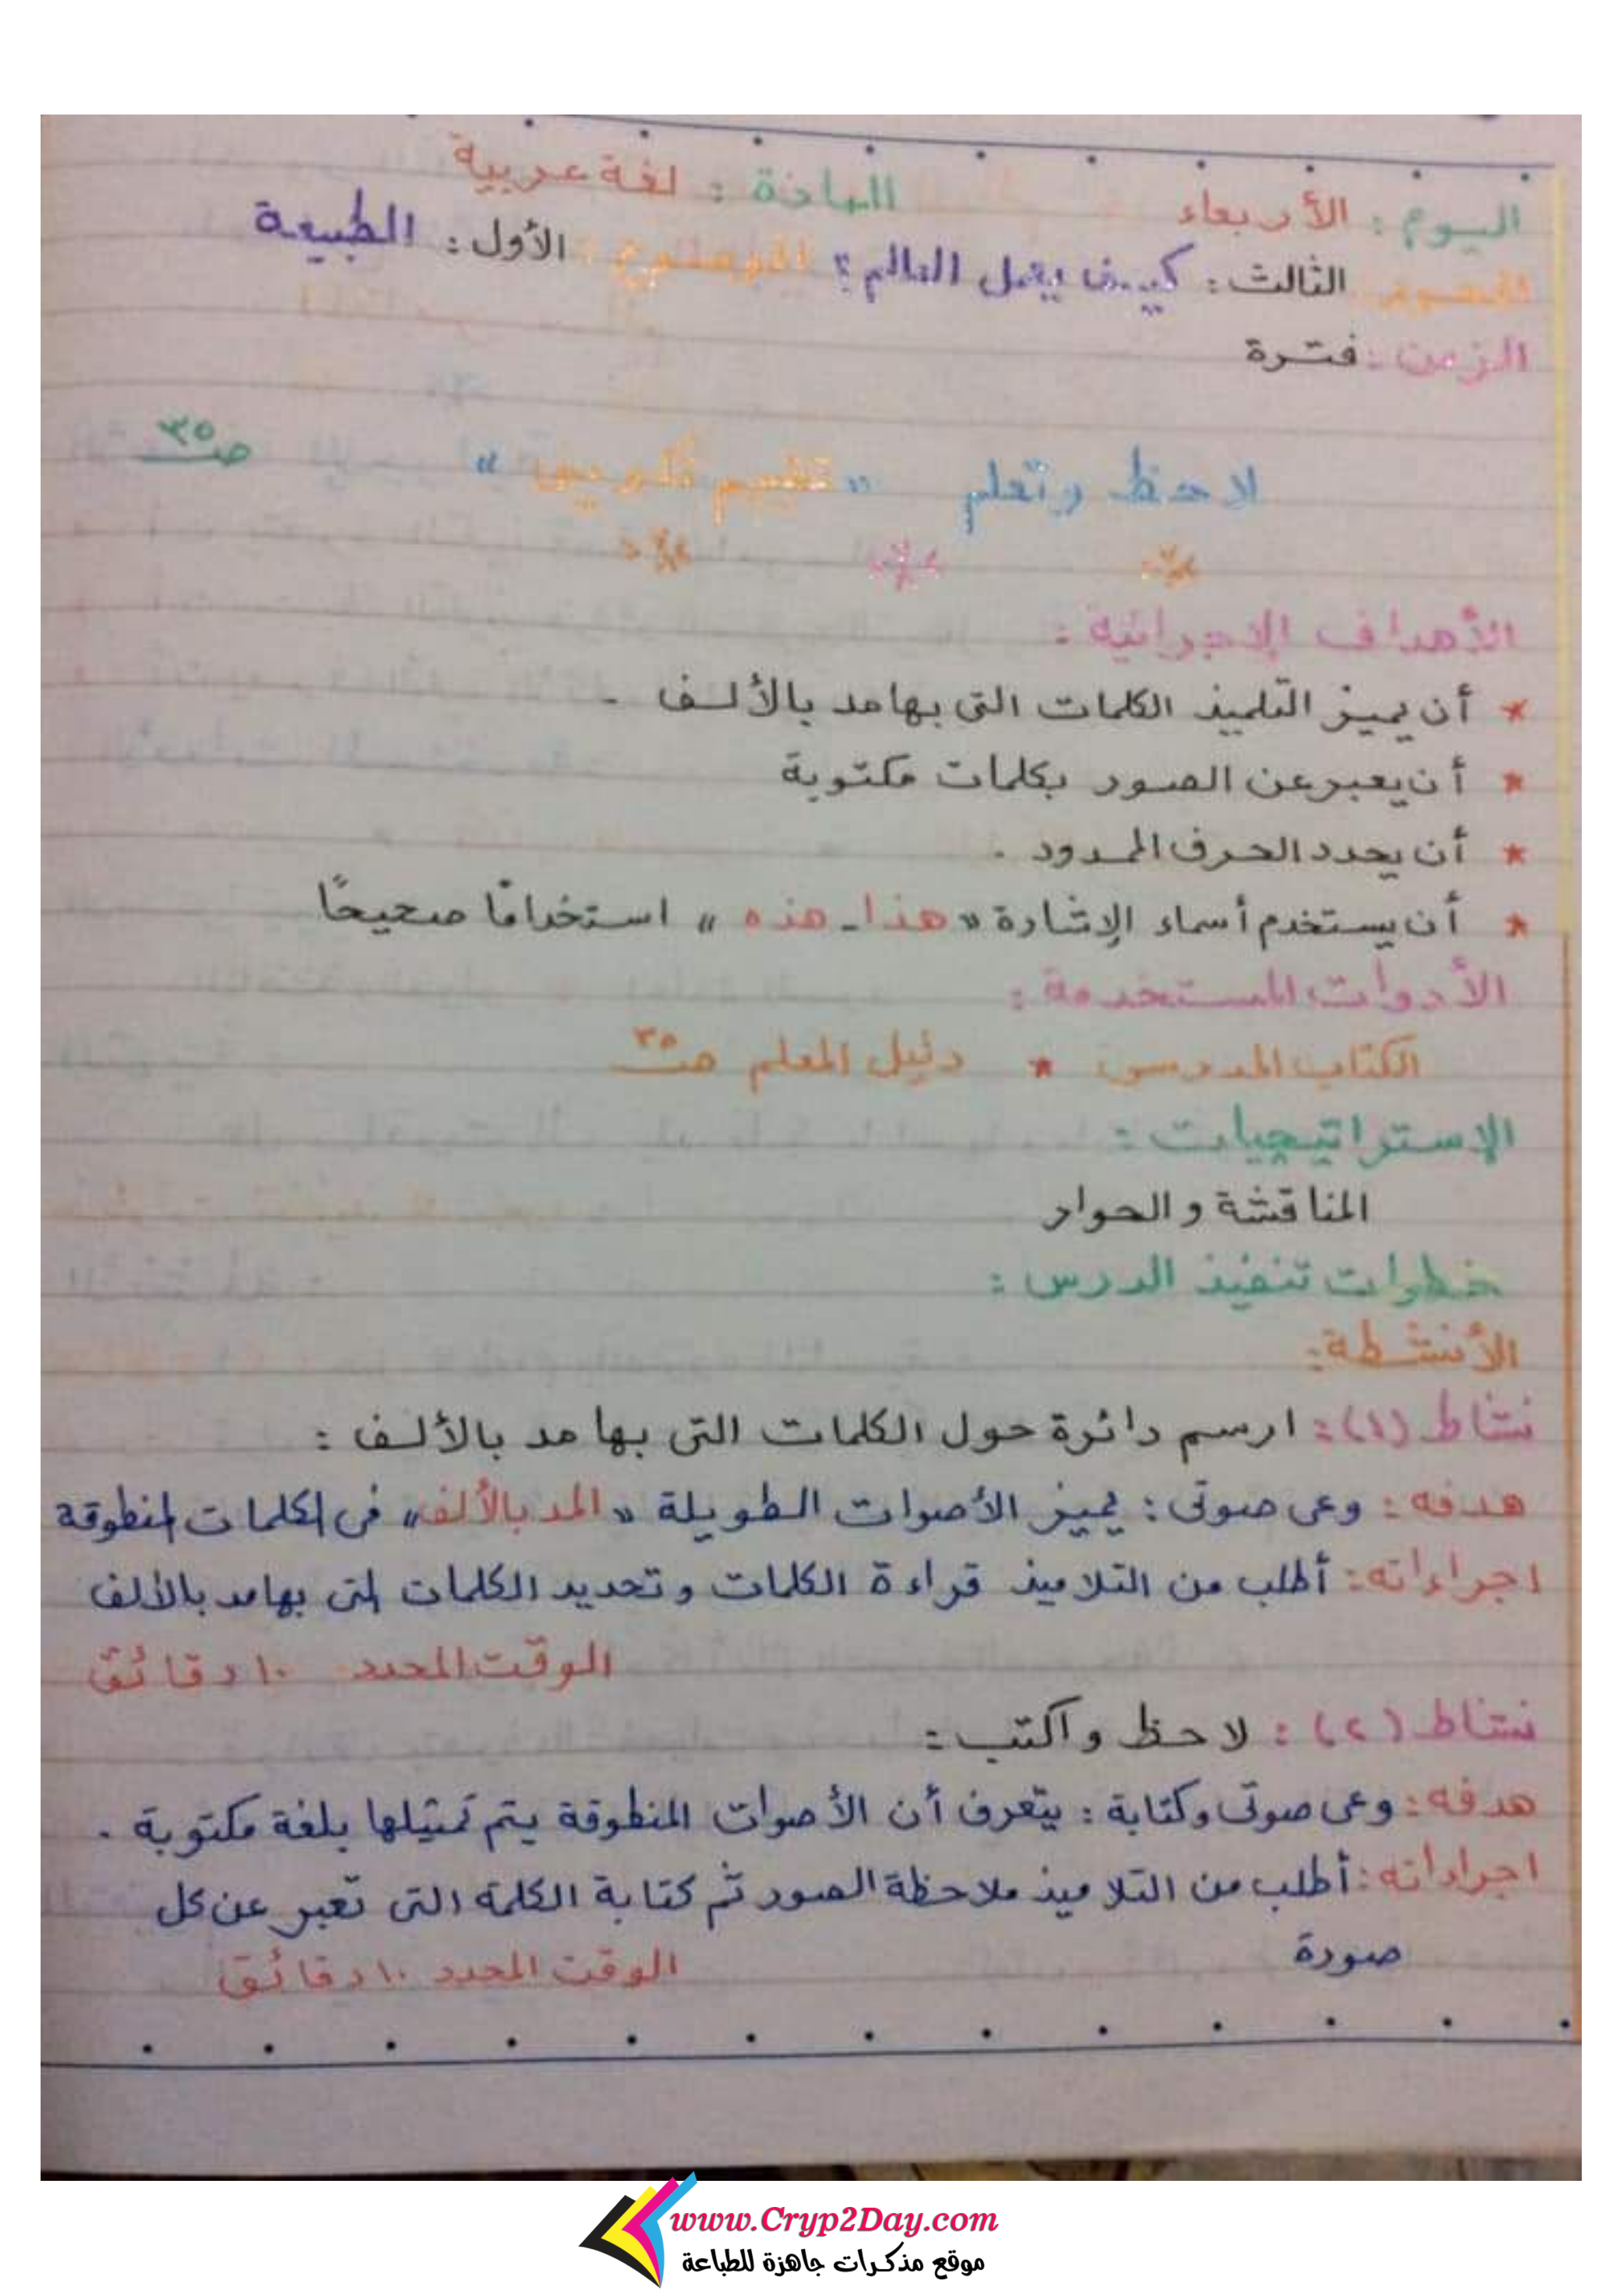 اليوم : الأربعاء المادة : لغة عربية
المحور الثالث : كيف يعمل العالم ؟ الموضوع الأول : الطبيعة
الزمن : فترة
لاحظ وتعلم « تقييم تكويني » صـ ٣٥
الأهداف الإجرائية :
* أن يميز التلميذ الكلمات التى بها مد بالألف .
* أن يعبر عن الصور بكلمات مكتوبة
* أن يحدد الحرف الممدود .
* أن يستخدم أسماء الإشارة « هذا - هذه » استخدامًا صحيحًا
الأدوات المستخدمة :
الكتاب المدرسى * دليل المعلم صـ ٣٥
الإستراتيجيات :
المناقشة والحوار
خطوات تنفيذ الدرس :
الأنشطة :
نشاط (١) : ارسم دائرة حول الكلمات التى بها مد بالألف :
هدفه : وعى صوتى : يميز الأصوات الطويلة « المد بالألف » فى الكلمات المنطوقة
اجراءاته : أطلب من التلاميذ قراءة الكلمات وتحديد الكلمات التى بها مد بالألف
الوقت المحدد ١٠ دقائق
نشاط (٢) : لاحظ واكتب :
هدفه : وعى صوتى وكتابة : يتعرف أن الأصوات المنطوقة يتم تمثيلها بلغة مكتوبة .
اجراءاته : أطلب من التلاميذ ملاحظة الصور ثم كتابة الكلمة التى تعبر عن كل
صورة
الوقت المحدد ١٠ دقائق
www.Cryp2Day.com
موقع مذكرات جاهزة للطباعة